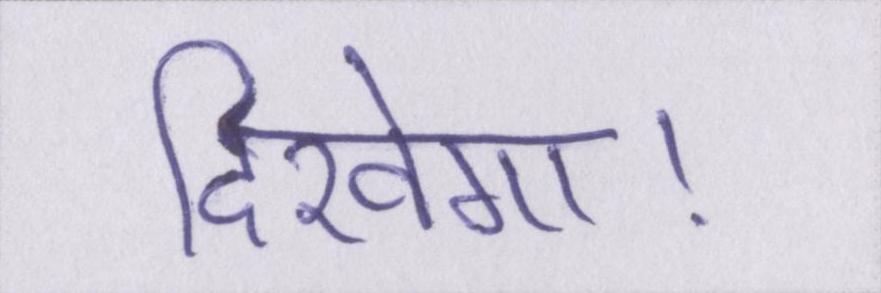 दिखेगा!